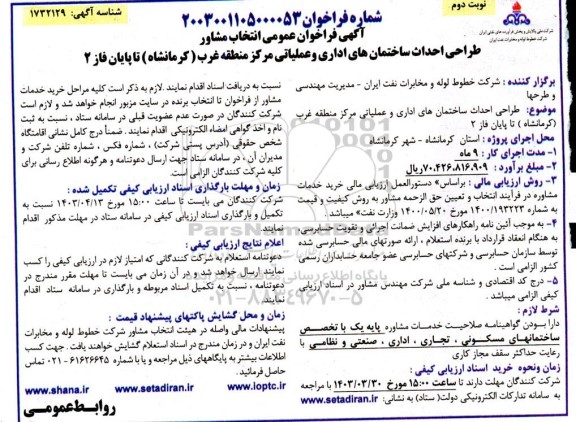 نوبت دوم
شناسه آگهی: ۱۷۳۲۱۲۹
شرکت ملی پالایش و پخش فرآورده های نفتی ایران
شرکت خطوط لوله و مخابرات نفت ایران
شماره فراخوان ۲۰۰۳۰۰۱۱۰۵۰۰۰۰۵۳
آگهی فراخوان عمومی انتخاب مشاور
طراحی احداث ساختمان های اداری وعملیاتی مرکز منطقه غرب ( کرمانشاه ) تا پایان فاز ۲
برگزار کننده : شرکت خطوط لوله و مخابرات نفت ایران - مدیریت مهندسی
و طرحها
موضوع: طراحی احداث ساختمان های اداری و عملیاتی مرکز منطقه غرب
(کرمانشاه ) تا پایان فاز ۲
محل اجرای پروژه : استان کرمانشاه - شهر کرمانشاه
۱- مدت اجرای کار : ۹ ماه
۲- مبلغ برآورد : ۷۰،۴۲۶،۸۱۶،۹۰۹ ریال
۳- روش ارزیابی مالی : براساس» دستورالعمل ارزیابی مالی خرید خدمات
مشاوره در فرآیند انتخاب و تعیین حق الزحمه مشاور به روش کیفیت و قیمت
به شماره ۱۴۰۰/۱۹۳۲۲۳ مورخ ۱۴۰۰/۰۵/۲۰ وزارت نفت» میباشد .
۴- به موجب آئین نامه راهکارهای افزایش ضمانت اجرائی و تقویت حسابرسی
به هنگام انعقاد قرارداد با برنده استعلام ، ارائه صورتهای مالی حسابرسی شده
توسط سازمان حسابرسی و شرکتهای حسابرسی عضو جامعه حسابداران رسمی
کشور الزامی است .
۵- درج کد اقتصادی و شناسه ملی شرکت مهندس مشاور در اسناد ارزیابی
کیفی الزامی میباشد .
شرط لازم :
دارا بودن گواهینامه صلاحیت خدمات مشاوره پایه یک با تخصص
ساختمانهای مسکونی ، تجاری ، اداری ، صنعتی و نظامی با
رعایت حداکثر سقف مجاز کاری
زمان ونحوه خرید اسناد ارزیابی کیفی :
شرکت کنندگان مهلت دارند تا ساعت ۱۵:۰۰ مورخ ۱۴۰۳/۰۳/۳۰ با مراجعه
به سامانه تدارکات الکترونیکی دولت( ستاد) به نشانی: www.setadiran.ir
نسبت به دریافت اسناد اقدام نمایند .لازم به ذکر است کلیه مراحل خرید خدمات
مشاور از فراخوان تا انتخاب برنده در سایت مزبور انجام خواهد شد و لازم است
شرکت کنندگان در صورت عدم عضویت قبلی در سامانه ستاد ، نسبت به ثبت
نام و اخذ گواهی امضاء الکترونیکی اقدام نمایند . ضمناً درج کامل نشانی اقامتگاه
شخص حقوقی (آدرس پستی شرکت) ، شماره فکس ، شماره تلفن شرکت و
مدیران آن ، در سامانه ستاد جهت ارسال دعوتنامه و هرگونه اطلاع رسانی برای
کلیه شرکت کنندگان الزامی است.
زمان و مهلت بارگذاری اسناد ارزیابی کیفی تکمیل شده :
شرکت کنندگان می بایست تا ساعت ۱۵:۰۰ مورخ ۱۴۰۳/۰۴/۱۳ نسبت به
تکمیل و بارگذاری اسناد ارزیابی کیفی در سامانه ستاد در مهلت مذکور اقدام
نمایند .
اعلام نتایج ارزیابی کیفی :
دعوتنامه استعلام به شرکت کنندگانی که امتیاز لازم در ارزیابی کیفی را کسب
نمایند ارسال خواهد شد و در آن زمان می بایست تا مهلت مقرر مندرج در
دعوتنامه ، نسبت به تکمیل اسناد مربوطه و بارگذاری در سامانه ستاد اقدام
نمایند .
زمان و محل گشایش پاکتهای پیشنهاد قیمت :
پیشنهادات مالی واصله در هیئت انتخاب مشاور شرکت خطوط لوله و مخابرات
نفت ایران و در زمان مندرج در اسناد استعلام گشایش خواهند یافت . جهت کسب
اطلاعات بیشتر به پایگاههای ذیل مراجعه و یا با شماره ۶۱۶۲۶۶۴۵ - ۰۲۱ تماس
حاصل فرمائید .
www.shana.ir www.setadiran.ir www.ioptc.ir
روابط عمومی
ParsNamadData
پایگاه اطلاع رسانی مناقصات و مزایدات
۰۲۱-۸۸۳۴۹۶۷۰-۵